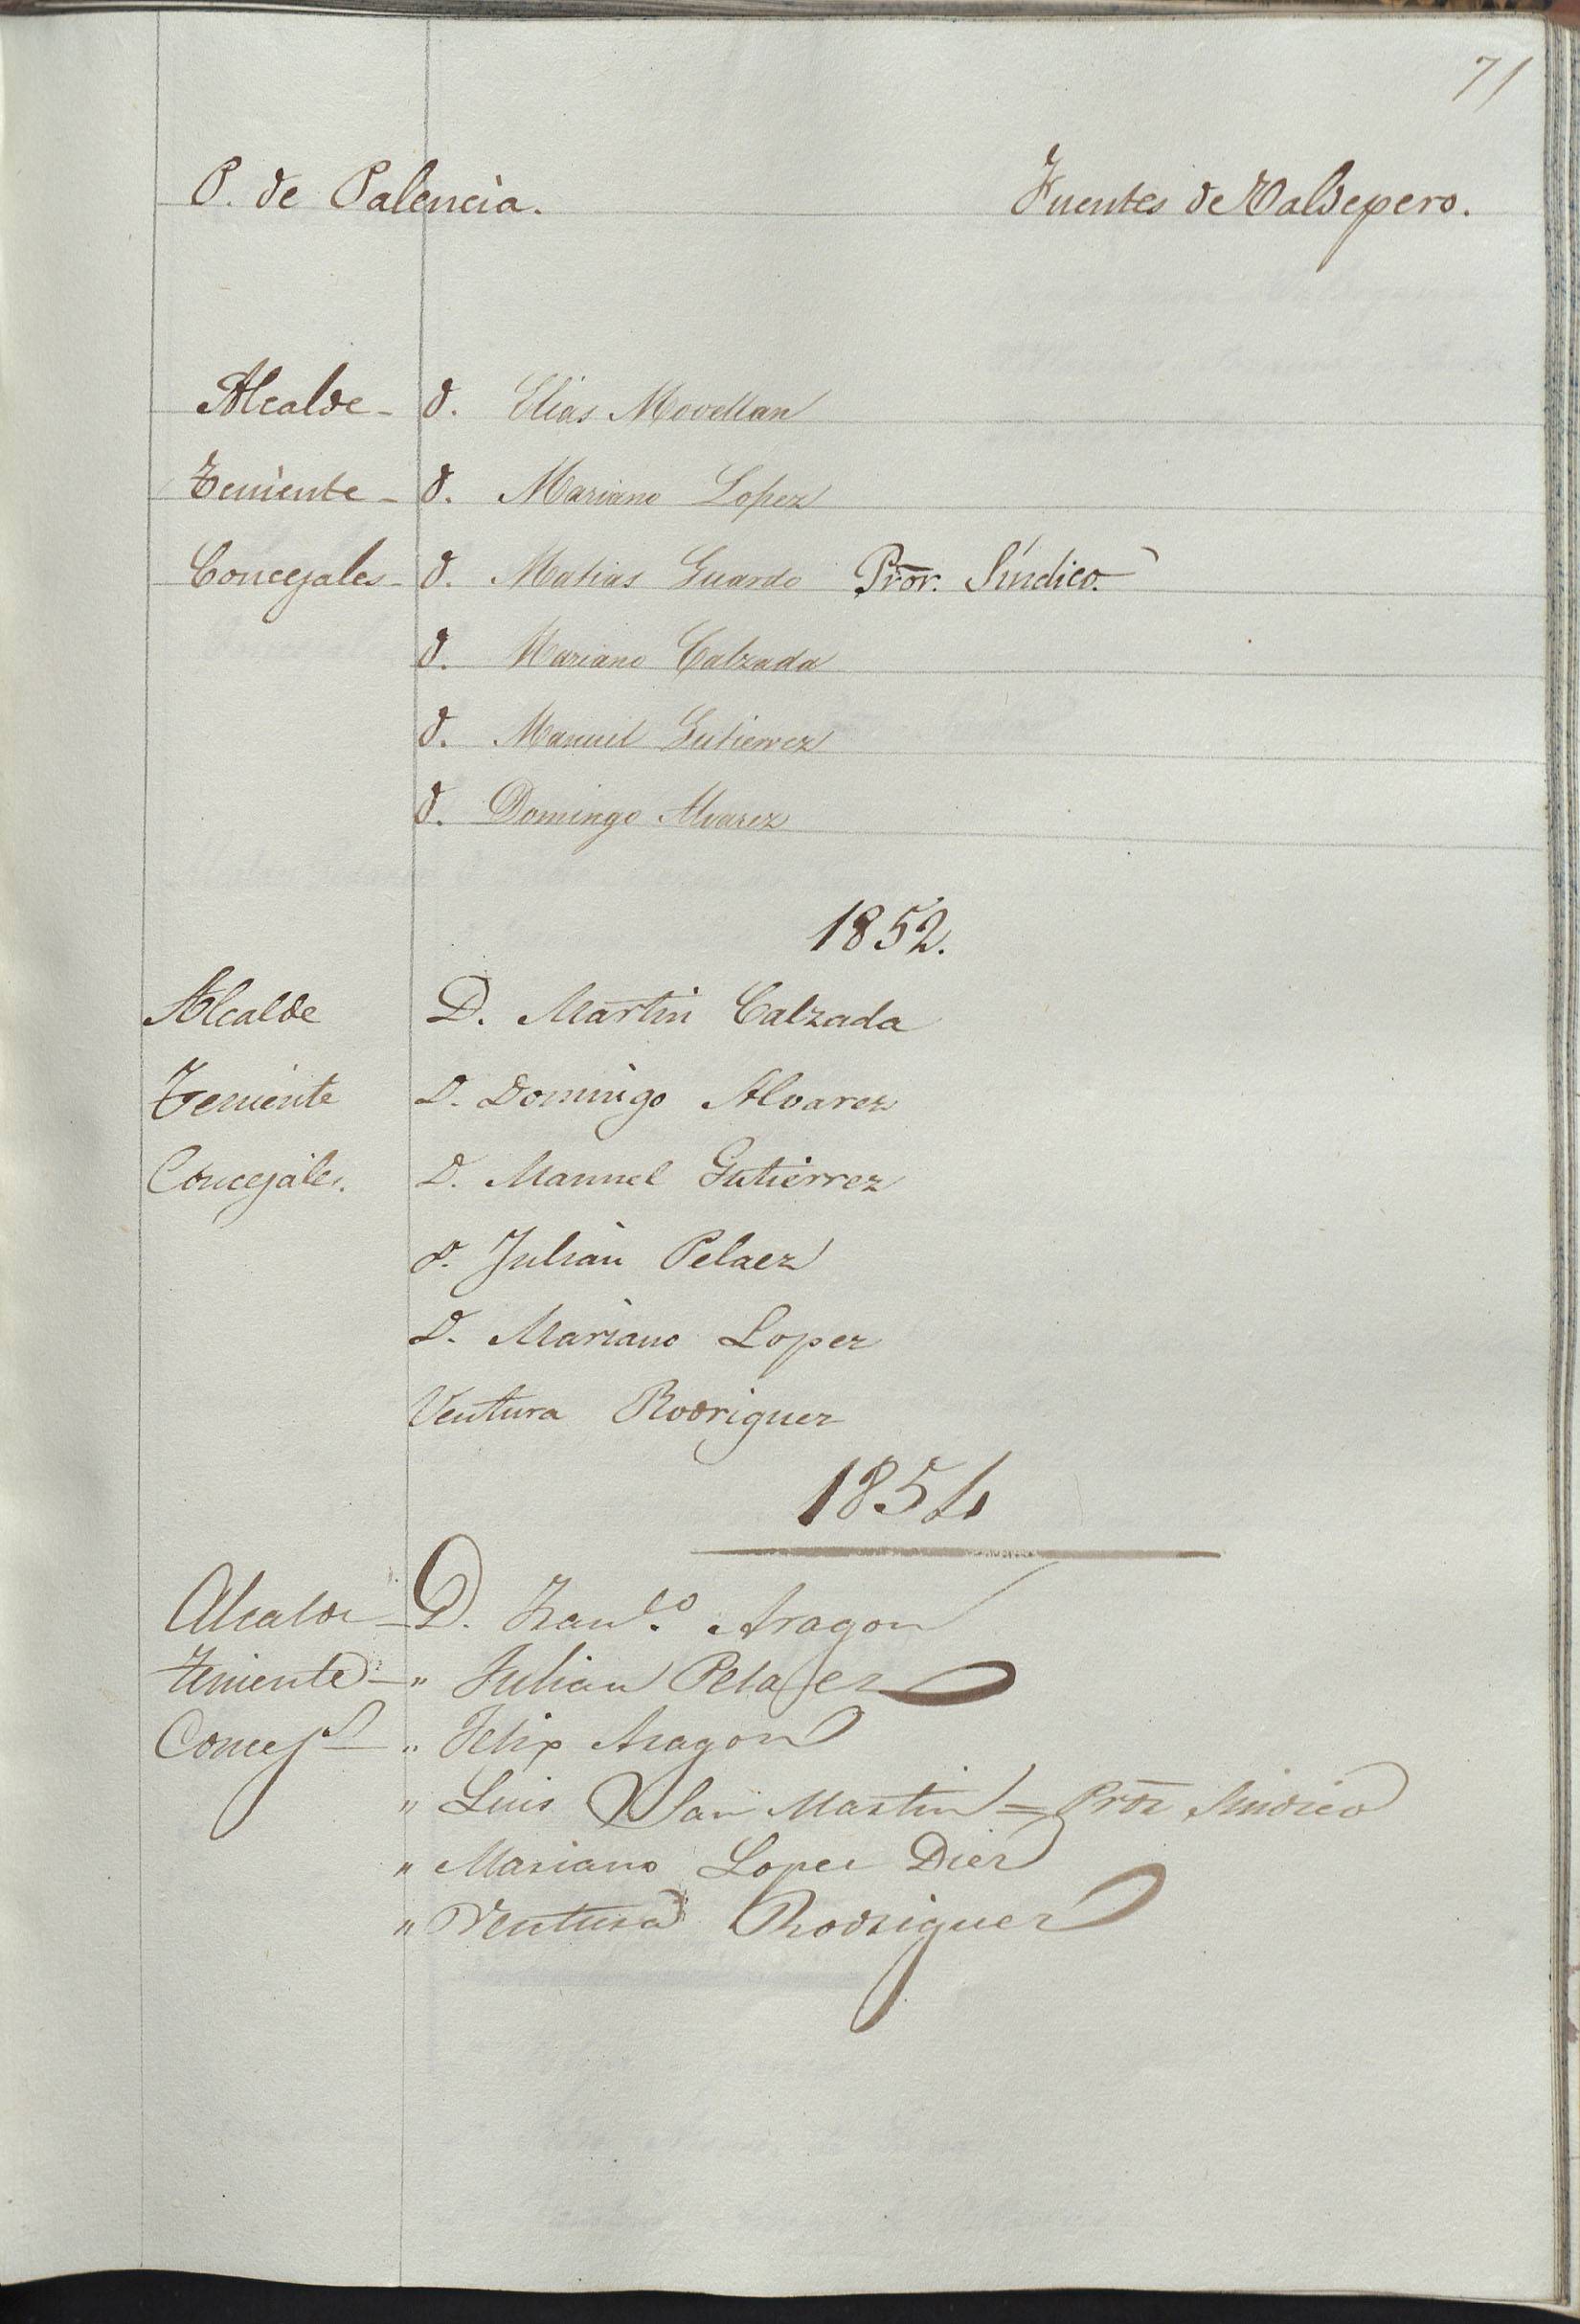 71
P. de Palencia. Fuentes de Valdepero.
Alcalde - D. Elias Movellan
Teniente - D. Mariano Lopez
Concejales - D. Matias Guardo Pror. Síndico.
D. Mariano Calzada
D. Manuel Gutierrez
D. Domingo Alvarez
1852.
Alcalde D. Martin Calzada
Teniente D. Domingo Alvarez
Concejales. D. Manuel Gutierrez
D. Julian Pelaez
D. Mariano Lopez
Ventura Rodriguez
1854
Alcalde - D. Franco. Aragon
Teniente - " Julian Pelaez
Concejs - " Felix Aragon
" Luis San Martin = Pror Sindico
" Mariano Lopez Diez
" Ventura Rodriguez